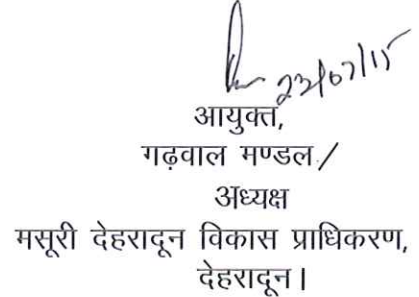 23/07/15
आयुक्त,
गढ़वाल मण्डल/
अध्यक्ष
मसूरी देहरादून विकास प्राधिकरण,
देहरादून।